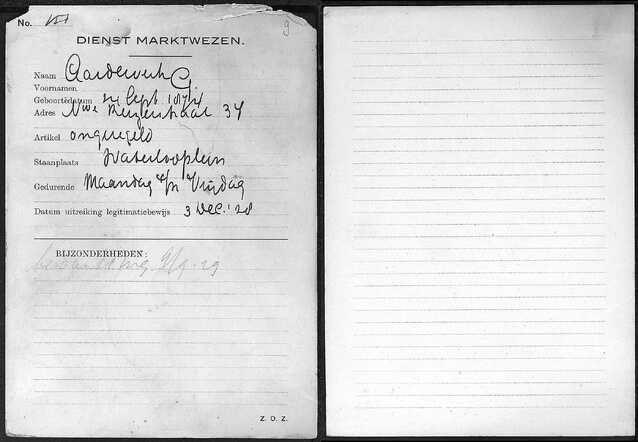 No. 151
9
DIENST MARKTWEZEN.
Naam Aardewerk G
Voornamen
Geboortedatum 22 Sept 1874
Adres Nwe Keizerstraat 34
Artikel ongeregeld
Staanplaats Waterlooplein
Gedurende Maandag t/m Vrijdag
Datum uitreiking legitimatiebewijs 3 Dec. '28
BIJZONDERHEDEN:
9/9-29
Z. O. Z.